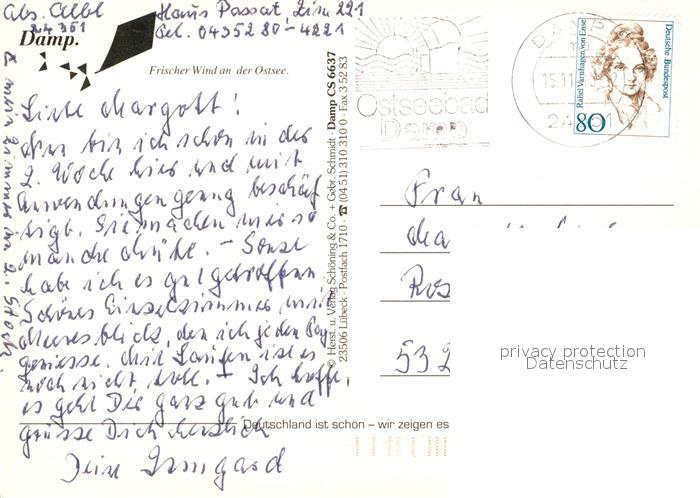 Abs. Albl Haus Passat Zim 221
24351 Tel. 04352 80-4221
Damp.
Frischer Wind an der Ostsee.
Liebe Margott!
Nun bin ich schon in der
2. Woche hier und mit
Anwendungen genug beschäf
tigt. Sie machen mir so
manche Mühe. – Sonst
habe ich es gut getroffen.
Schönes Einzelzimmer mit
Meeresblick, den ich jeden Tag
geniesse. Mit Laufen ist es
noch nicht toll. – Ich hoffe,
es geht Dir ganz gut und
grüsse Dich herzlich
Deine Irmgard
mein Zimmer im 2. Stock
© Herst. u. Verlag Schöning & Co. + Gebr. Schmidt · Damp CS 6637
23506 Lübeck · Postfach 1710 · ☎ (04 51) 310 310 0 · Fax 3 52 83
Ostseebad
Damp
DAMP
15.11
Rahel Varnhagen von Ense
Deutsche Bundespost
80
Frau
Ma
Ros
532
privacy protection
Datenschutz
Deutschland ist schön – wir zeigen es